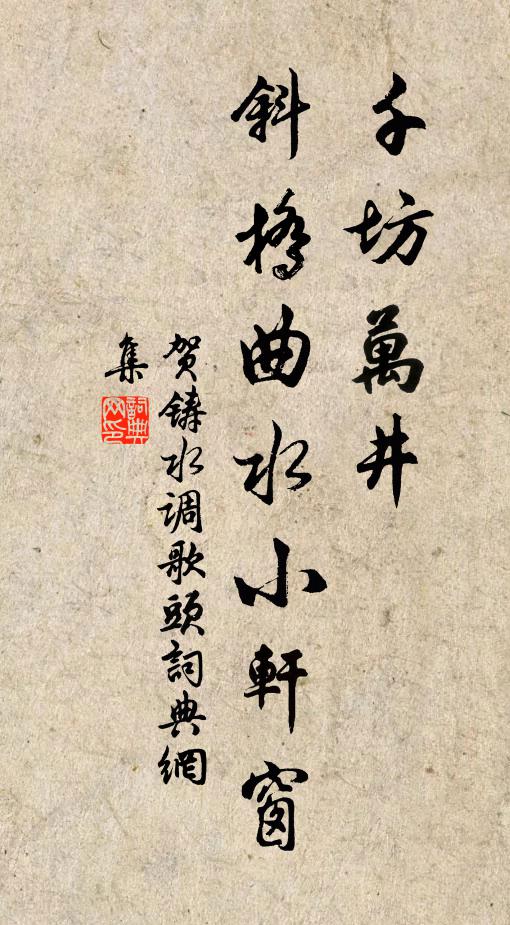 千坊萬井
斜橋曲水小軒窗
贺鑄水调歌頭詞典網
集
詞典网印